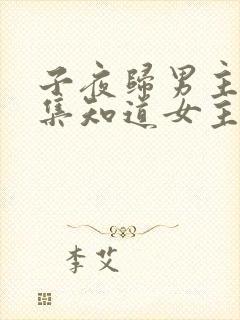 子夜歸男主
集知道女主
李艾